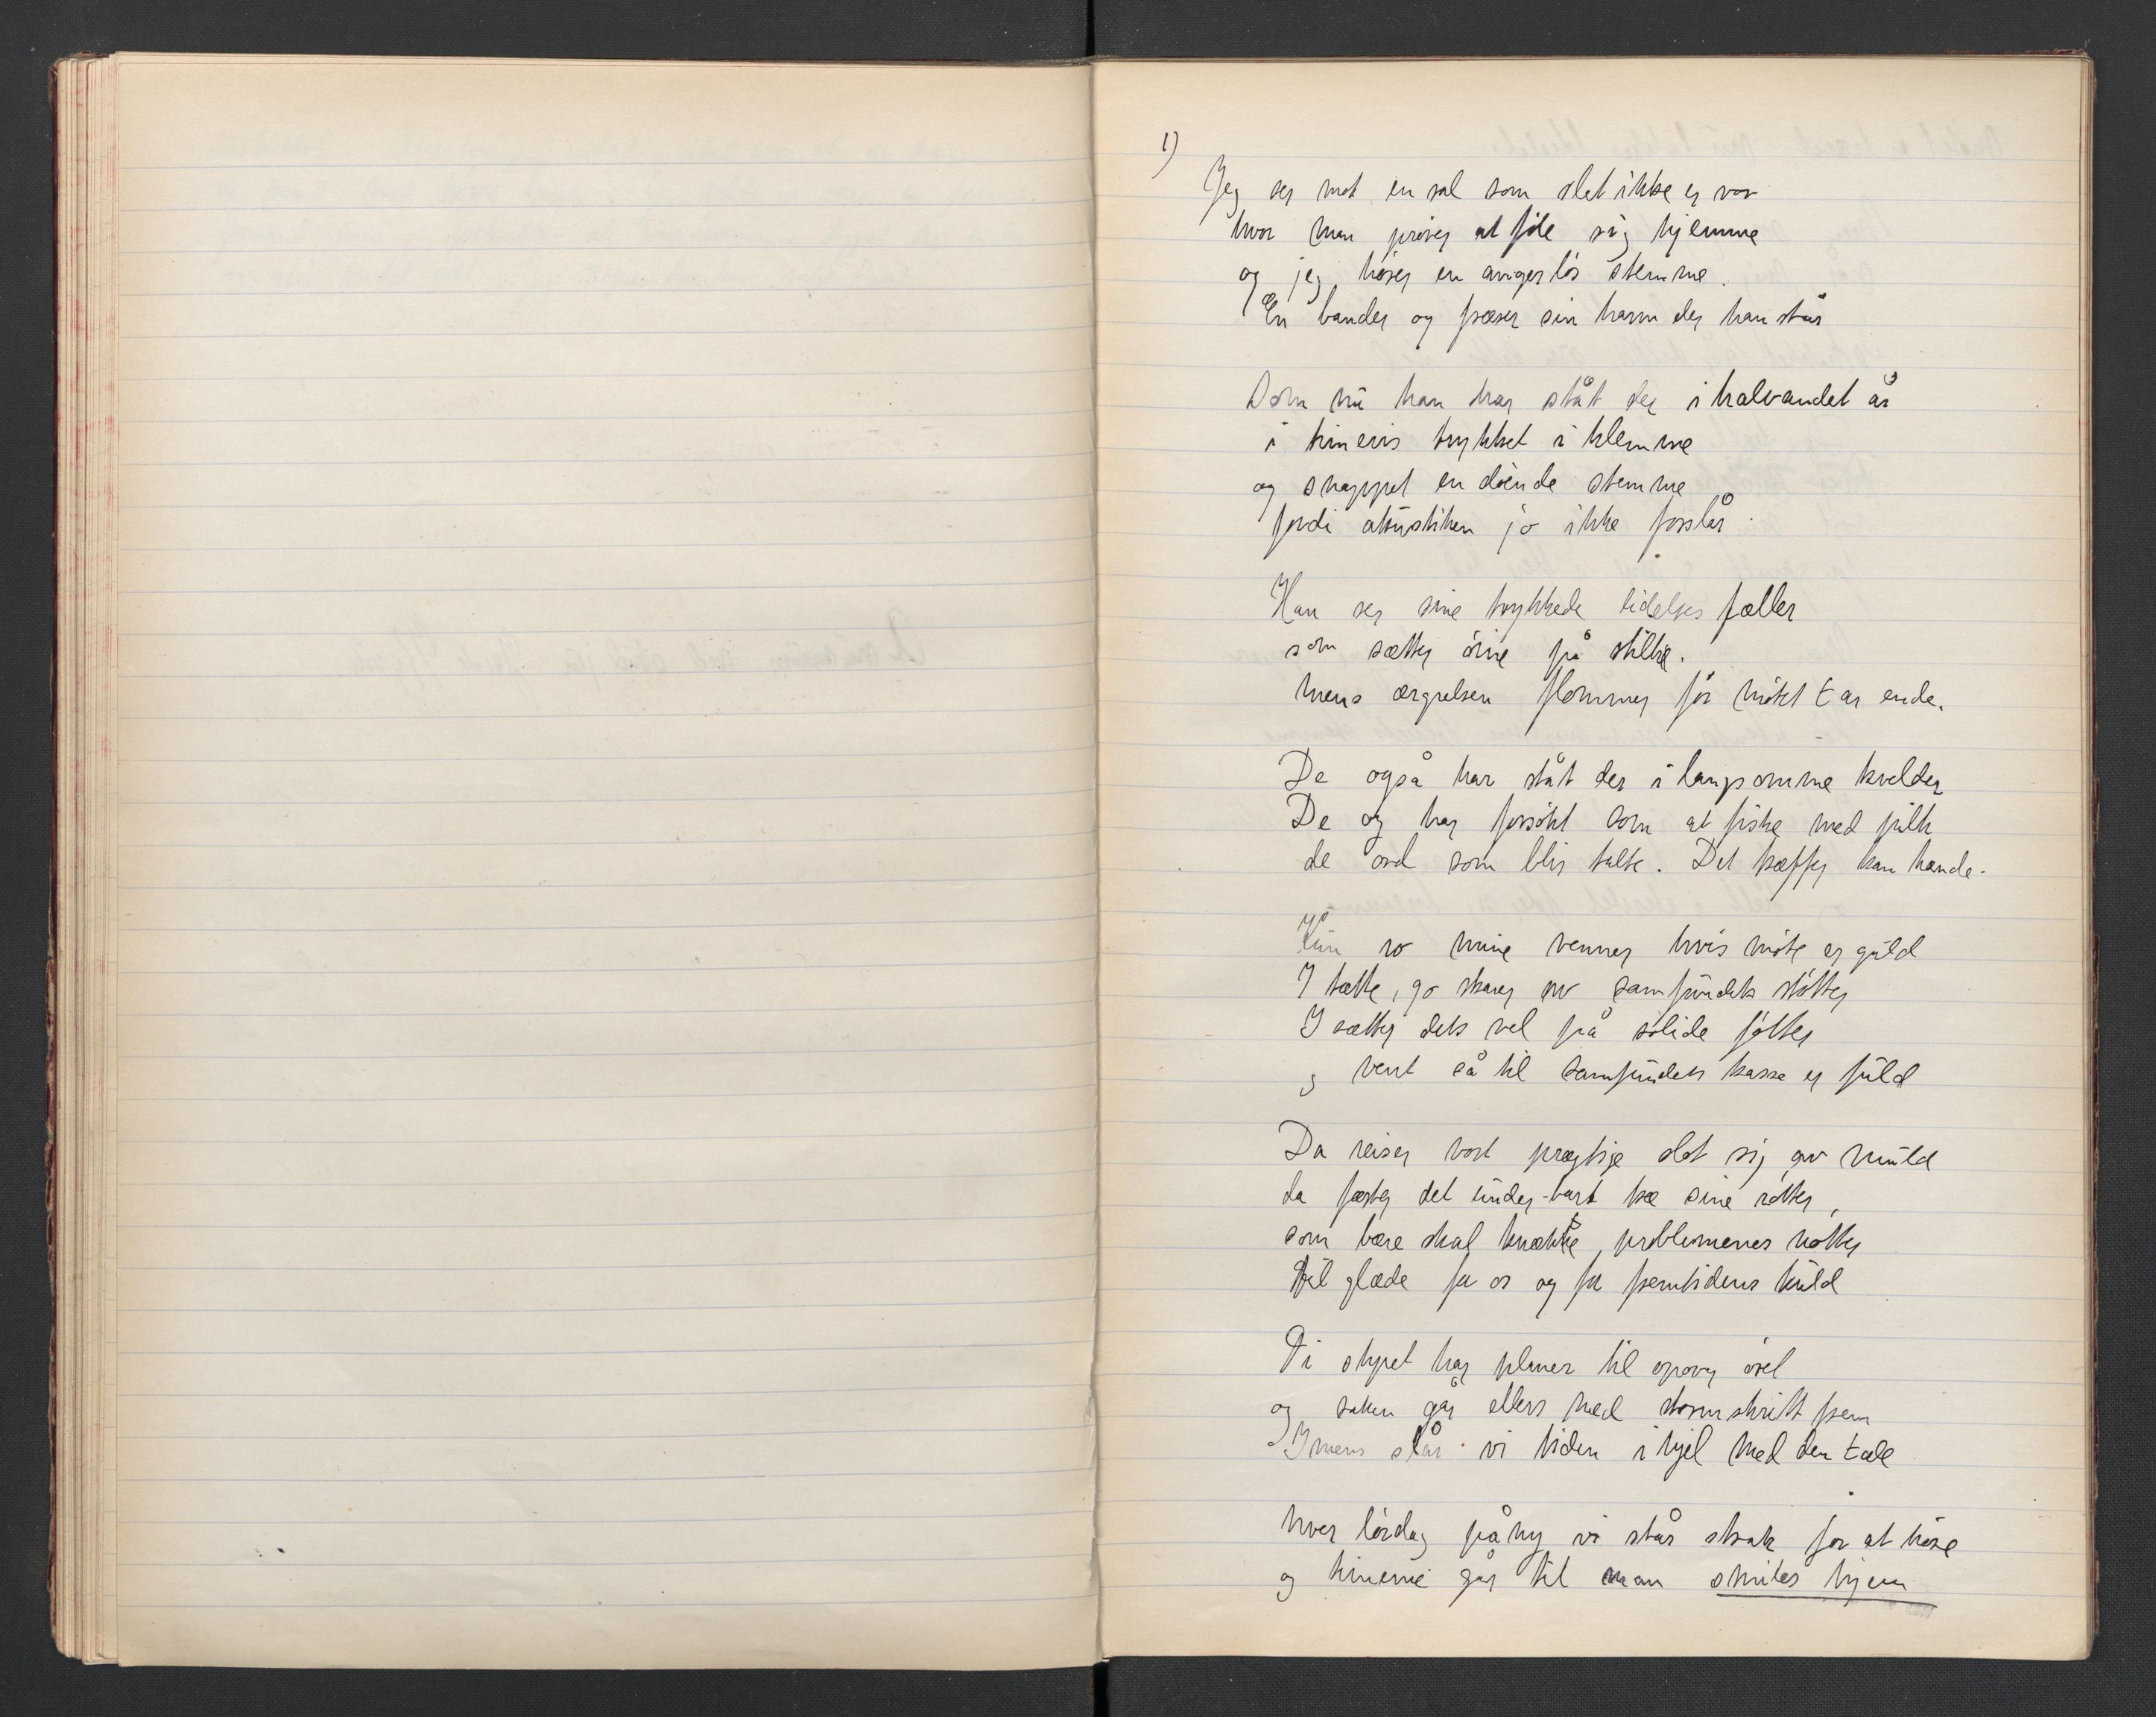 1)
Jeg ser mot en sal som slet ikke er vor
hvor man prøver at føle sig hjemme
og jeg hører en angerløs stemme.
En bander og fræser sin harm der han står
Som nu han har ståt der i halvandet år
i timevis trykket i klemme
og snappet en døende stemme
fordi akustiken jo ikke forslår.
Han ser sine trykkede lidelsesfæller
som sætter øine på stilke.
mens ærgrelsen flommer før møtet tar ende.
De også har ståt der i langsomme kvelder
De og har forsøkt som at fiske med pilk
de ord som blir talte. Det træffer kan hænde.
Kun ro mine venner hvis møte er guld
I tætte, go skarer av samfundets støtter
I sætter dets vel på solide føtter
og vent så til samfundets kasse er fuld
Da reiser vort prægtige slot sig av muld
da fæster det underbart træ sine røtter,
som bare skal knække problemenes nøtter
til glæde for os og for fremtidens kuld
Ti styret har planer til opover
og saken går ellers med stormskritt frem
Imens slår vi tiden ihjel med den tale
hver lørdag på ny vi står strak for at høre
og timene går til man smiles hjem